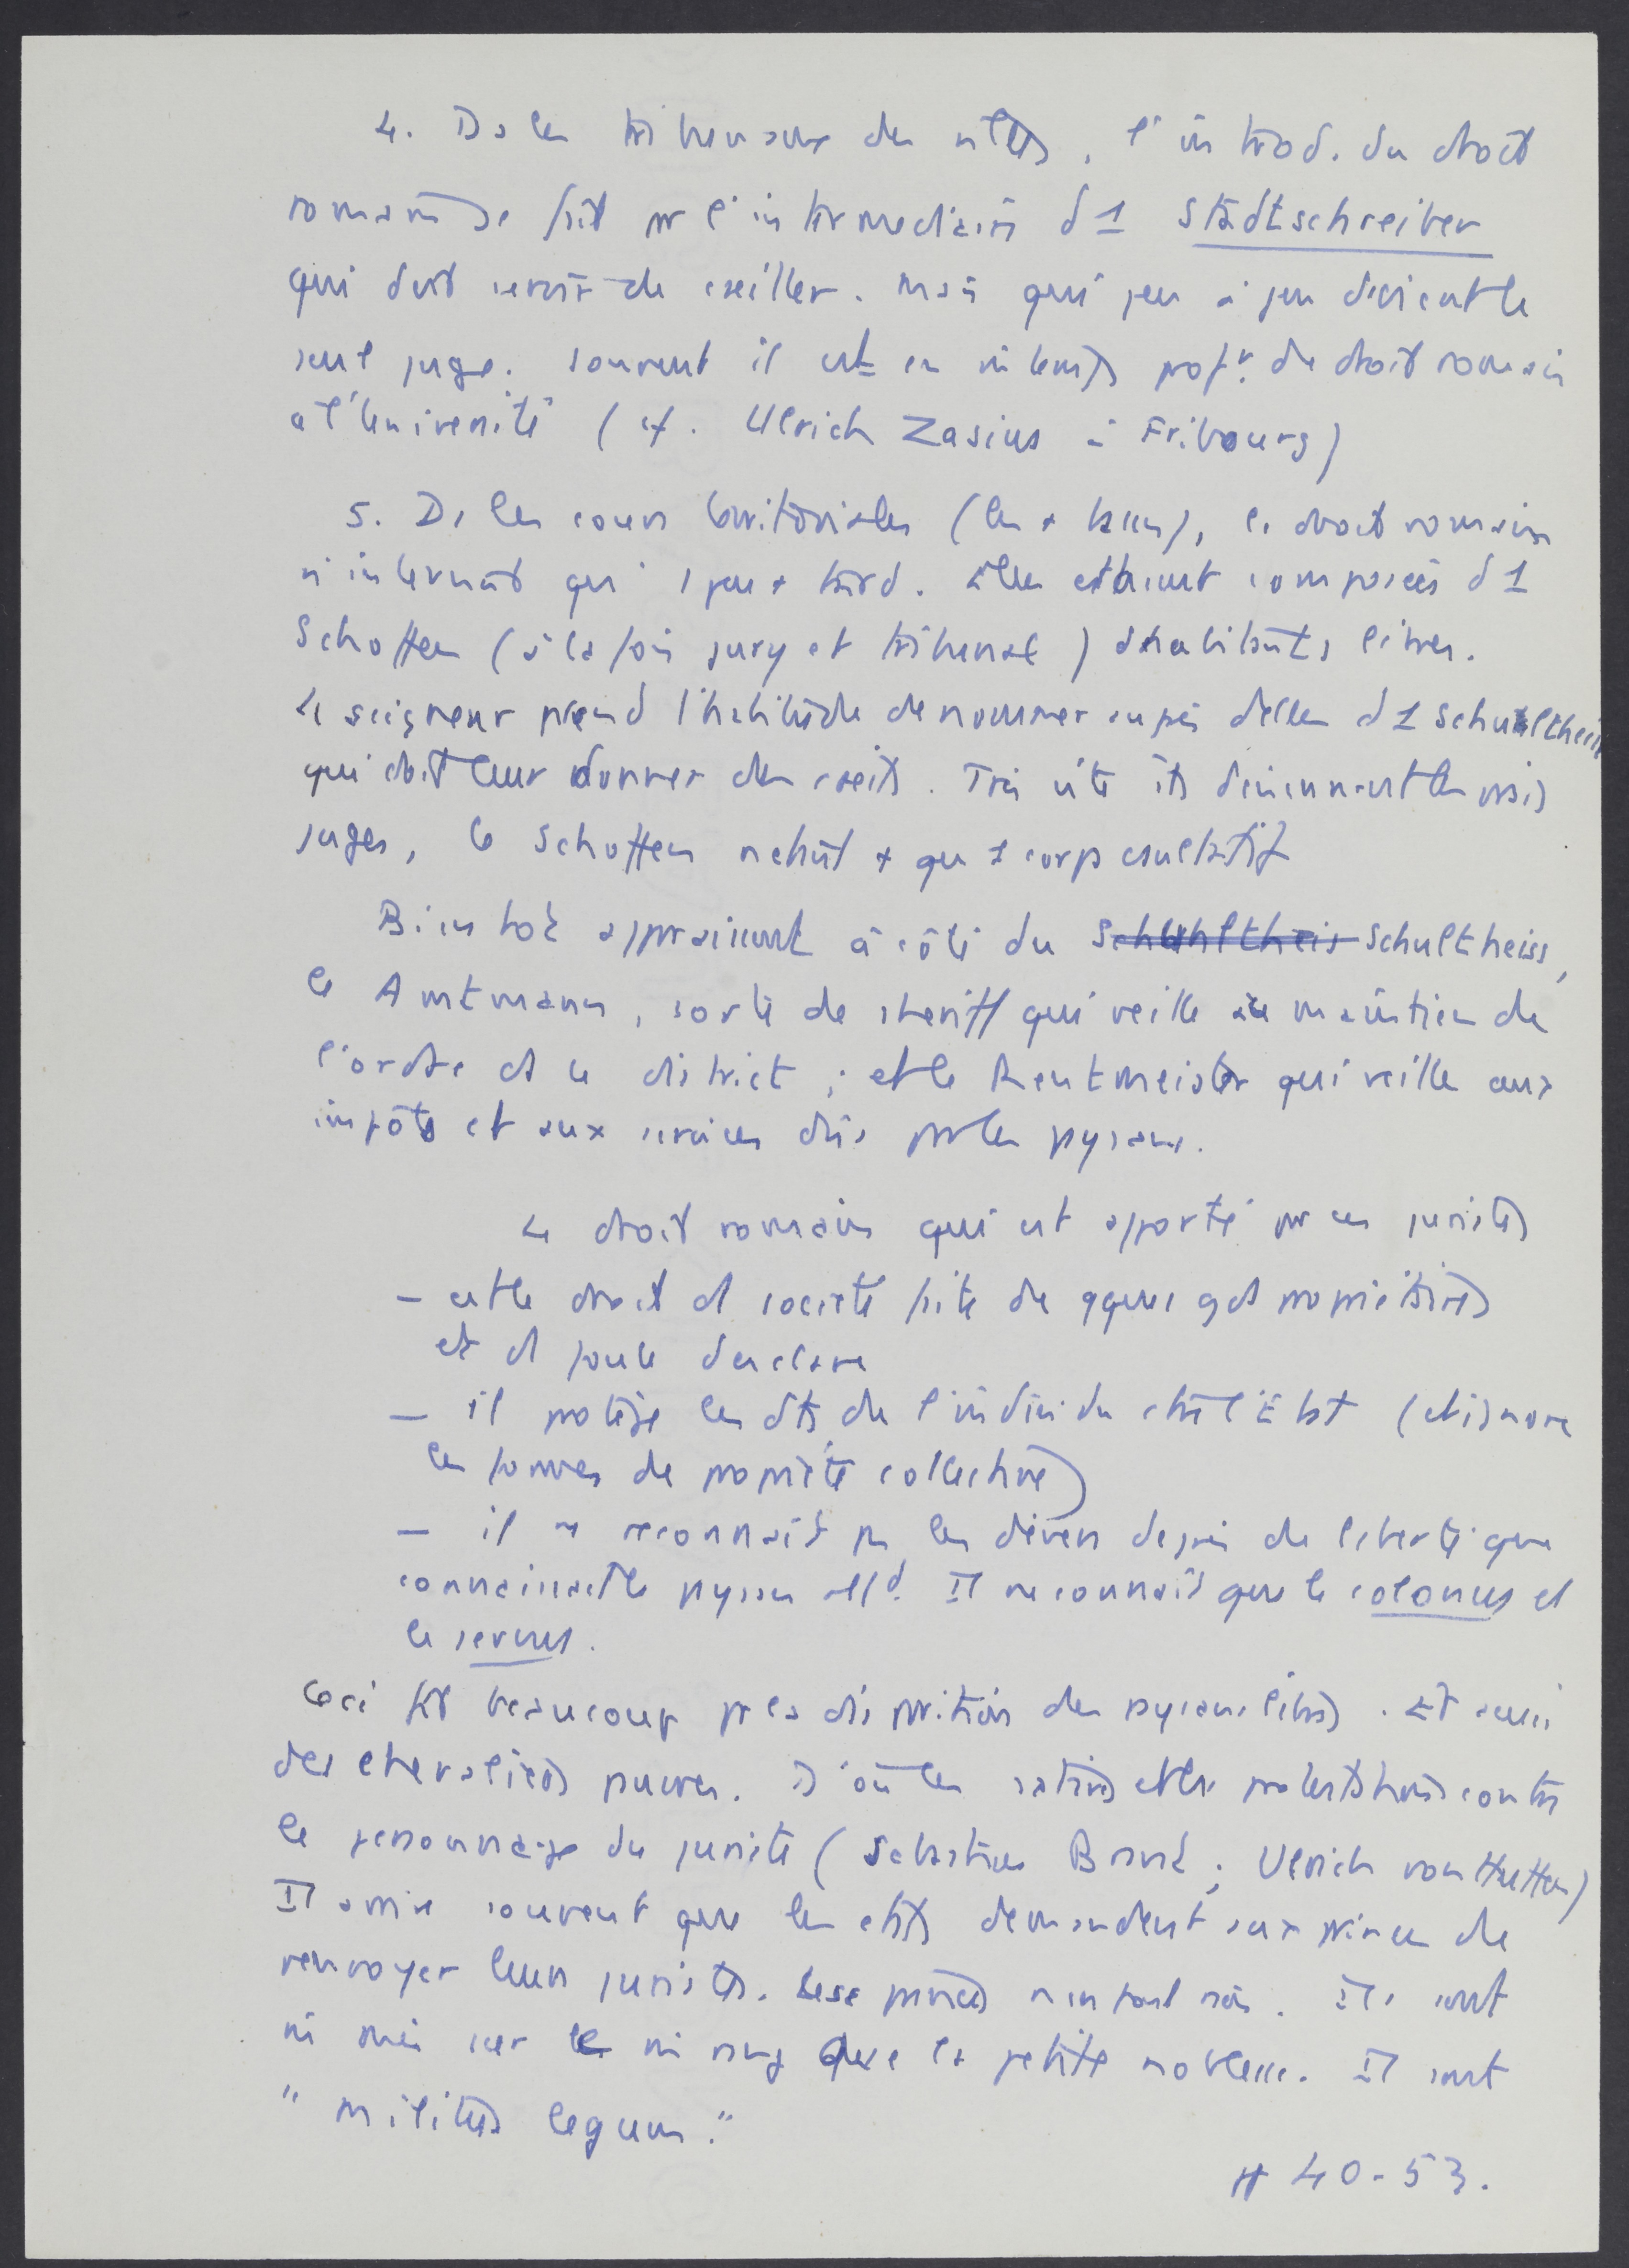 4. Ds les tribunaux des villes, l'introd. du droit
romain se fait pr l'intermediaire d1 Stadtschreiber
qui doit servir de cseiller. Mais qui peu à peu devient le
seul juge. Souvent il est en m temps profr. de droit romain
a l'Université (cf. Ulrich Zasius à Fribourg)
5. Ds les cours territoriales (les + basses), le droit romain
n'intervint qu' 1 peu + tard. Elles etaient composées d1
Schoffen (à la fois jury et tribunal) d'habitants libres.
Le seigneur prend l'habitude de nommer auprès d'elles d1 Schultheiss
qui doit leur donner des cseils. Très vite ils deviennent les vrais
juges, le Schoffen n'etant + qu 1 corps csultatif
Bientot apparaissent à côté du Schuhltheis Schultheiss,
le Amtmann, sorte de sheriff qui veille au maintien de
l'ordre ds le district ; et le Rentmeister qui veille aux
impôts et aux services dûs pr les paysans.
Le droit romain qui est apporté pr ces juristes
- est le droit d1 société faite de qques gds propriétaires
et d1 foule d'esclaves
- il protège les dts de l'individu ctre l'Etat (et ignore
les formes de propriété collective)
- il ne reconnait pas les divers degrés de liberté que
connaissait le paysan alld. Il ne connait que le colonus et
le servus.
Ceci fit beaucoup pr la disparition des paysans libres. Et aussi
des chevaliers pauvres. D'où les satires et les protestations contre
le personnage du juriste (Sebastian Brant ; Ulrich von Hutten)
Il arrive souvent que les etats demandent aux princes de
renvoyer leurs juristes. Les princes n'en font rien. Ils sont
" milites legum."
H 40-53.